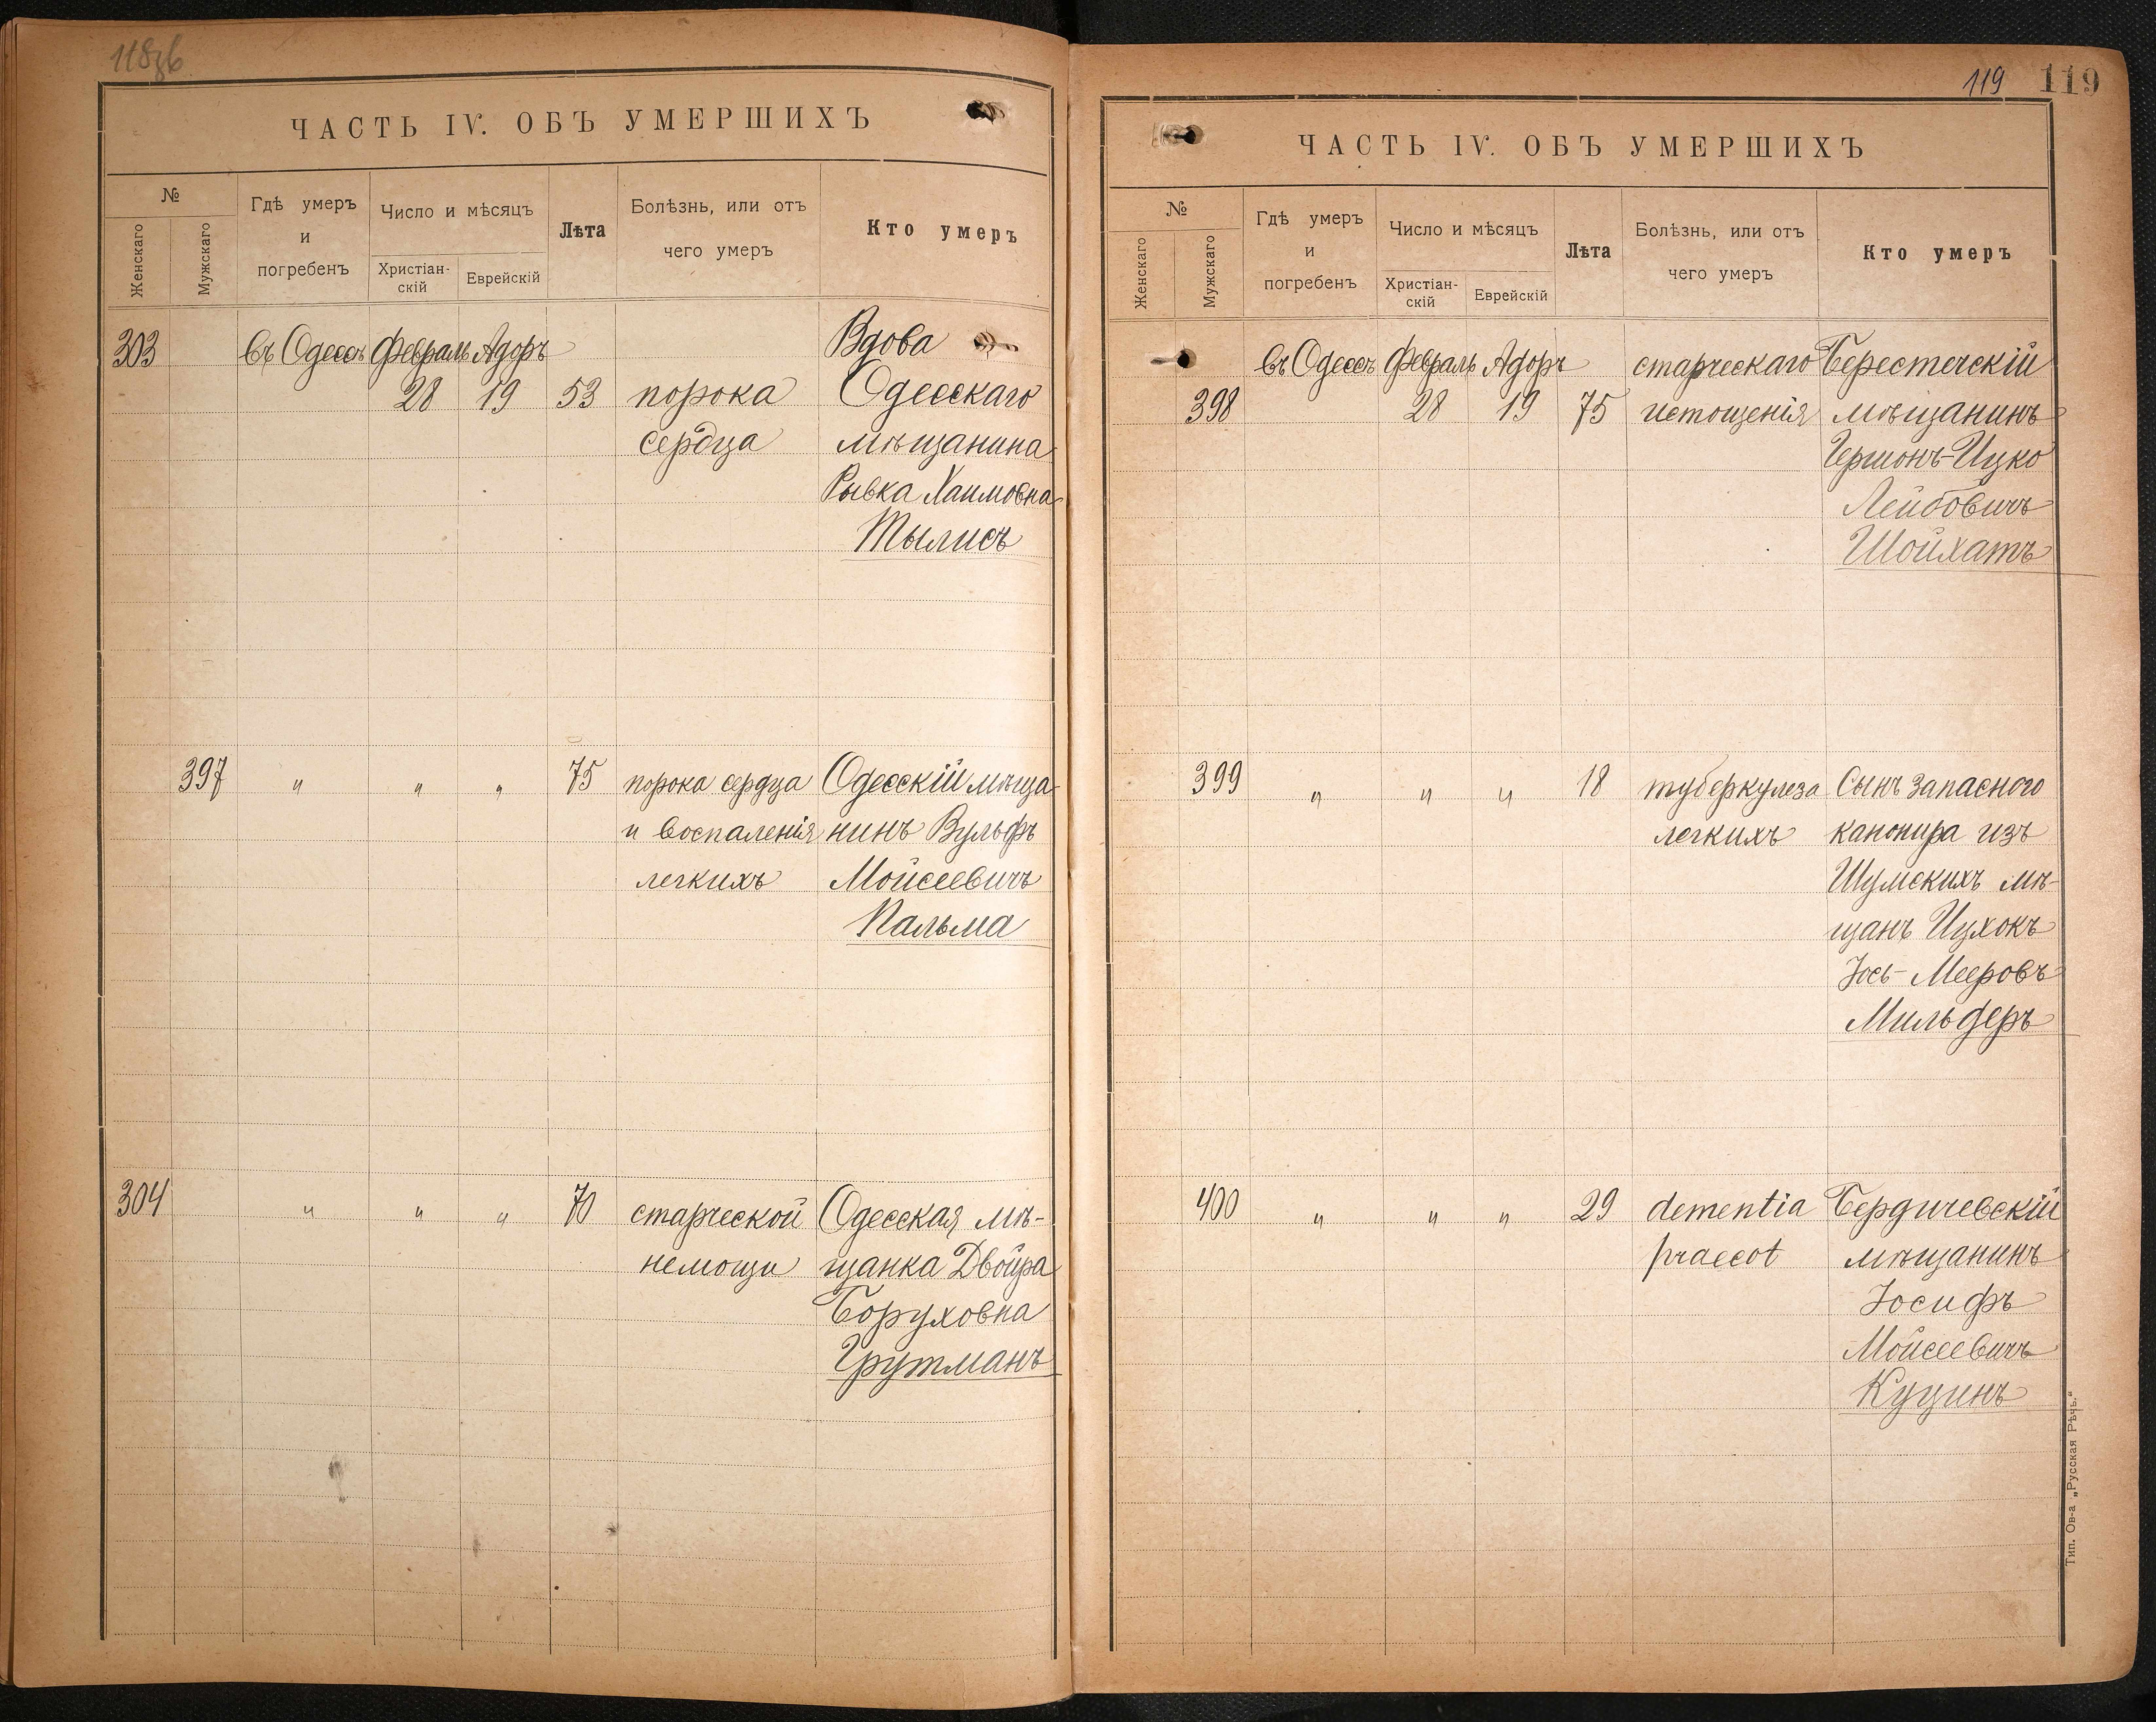 118об
ЧАСТЬ IV. ОБЪ УМЕРШИХЪ
№
Женскаго
Мужскаго
Гдѣ умеръ
и
погребенъ
Число и мѣсяцъ
Христіан-
скій
Еврейскій
Лѣта
Болѣзнь, или отъ
чего умеръ
Кто умеръ
303 въ Одессѣ Февраль Адоръ Вдова
28 19 53 порока Одесскаго
сердца мѣщанина
Рывка Хаимовна
Тылисъ
397 " " " 75 порока сердца Одесскій мѣща-
и воспаленія нинъ Вульфъ
легкихъ Мойсеевичъ
Пальма
304 " " " 70 старческой Одесская мѣ-
немощи щанка Двойра
Боруховна
Грутманъ
119 119
ЧАСТЬ IV. ОБЪ УМЕРШИХЪ
№
Женскаго
Мужскаго
Гдѣ умеръ
и
погребенъ
Число и мѣсяцъ
Христіан-
скій
Еврейскій
Лѣта
Болѣзнь, или отъ
чего умеръ
Кто умеръ
въ Одессѣ Февраль Адоръ старческаго Берестечскій
398 28 19 75 истощенія мѣщанинъ
Гершонъ-Ицко
Лейбовичъ
Шойхатъ
399 " " " 18 туберкулеза Сынъ запасного
легкихъ канонира изъ
Шумскихъ мѣ-
щанъ Ицхокъ
Іось-Мееровъ
Мильдеръ
400 " " " 29 dementia Бердичевскій
praecot мѣщанинъ
Іосифъ
Мойсеевичъ
Куцинъ
Тип. Ов-а „Русская Рѣчь."